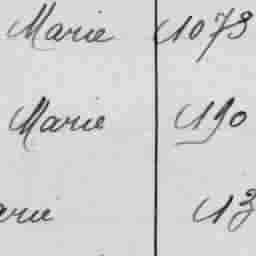 Marie 1073
Marie 190
arie 13